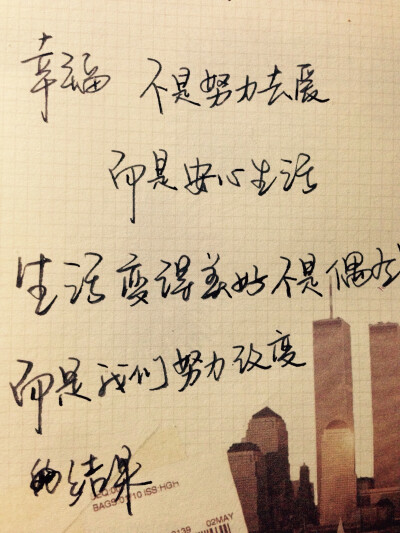 幸福 不是努力去爱
而是安心生活
生活变得美好不是偶
而是我们努力改变
的结果
BAGS:0/10 ISS:HGH
02MAY